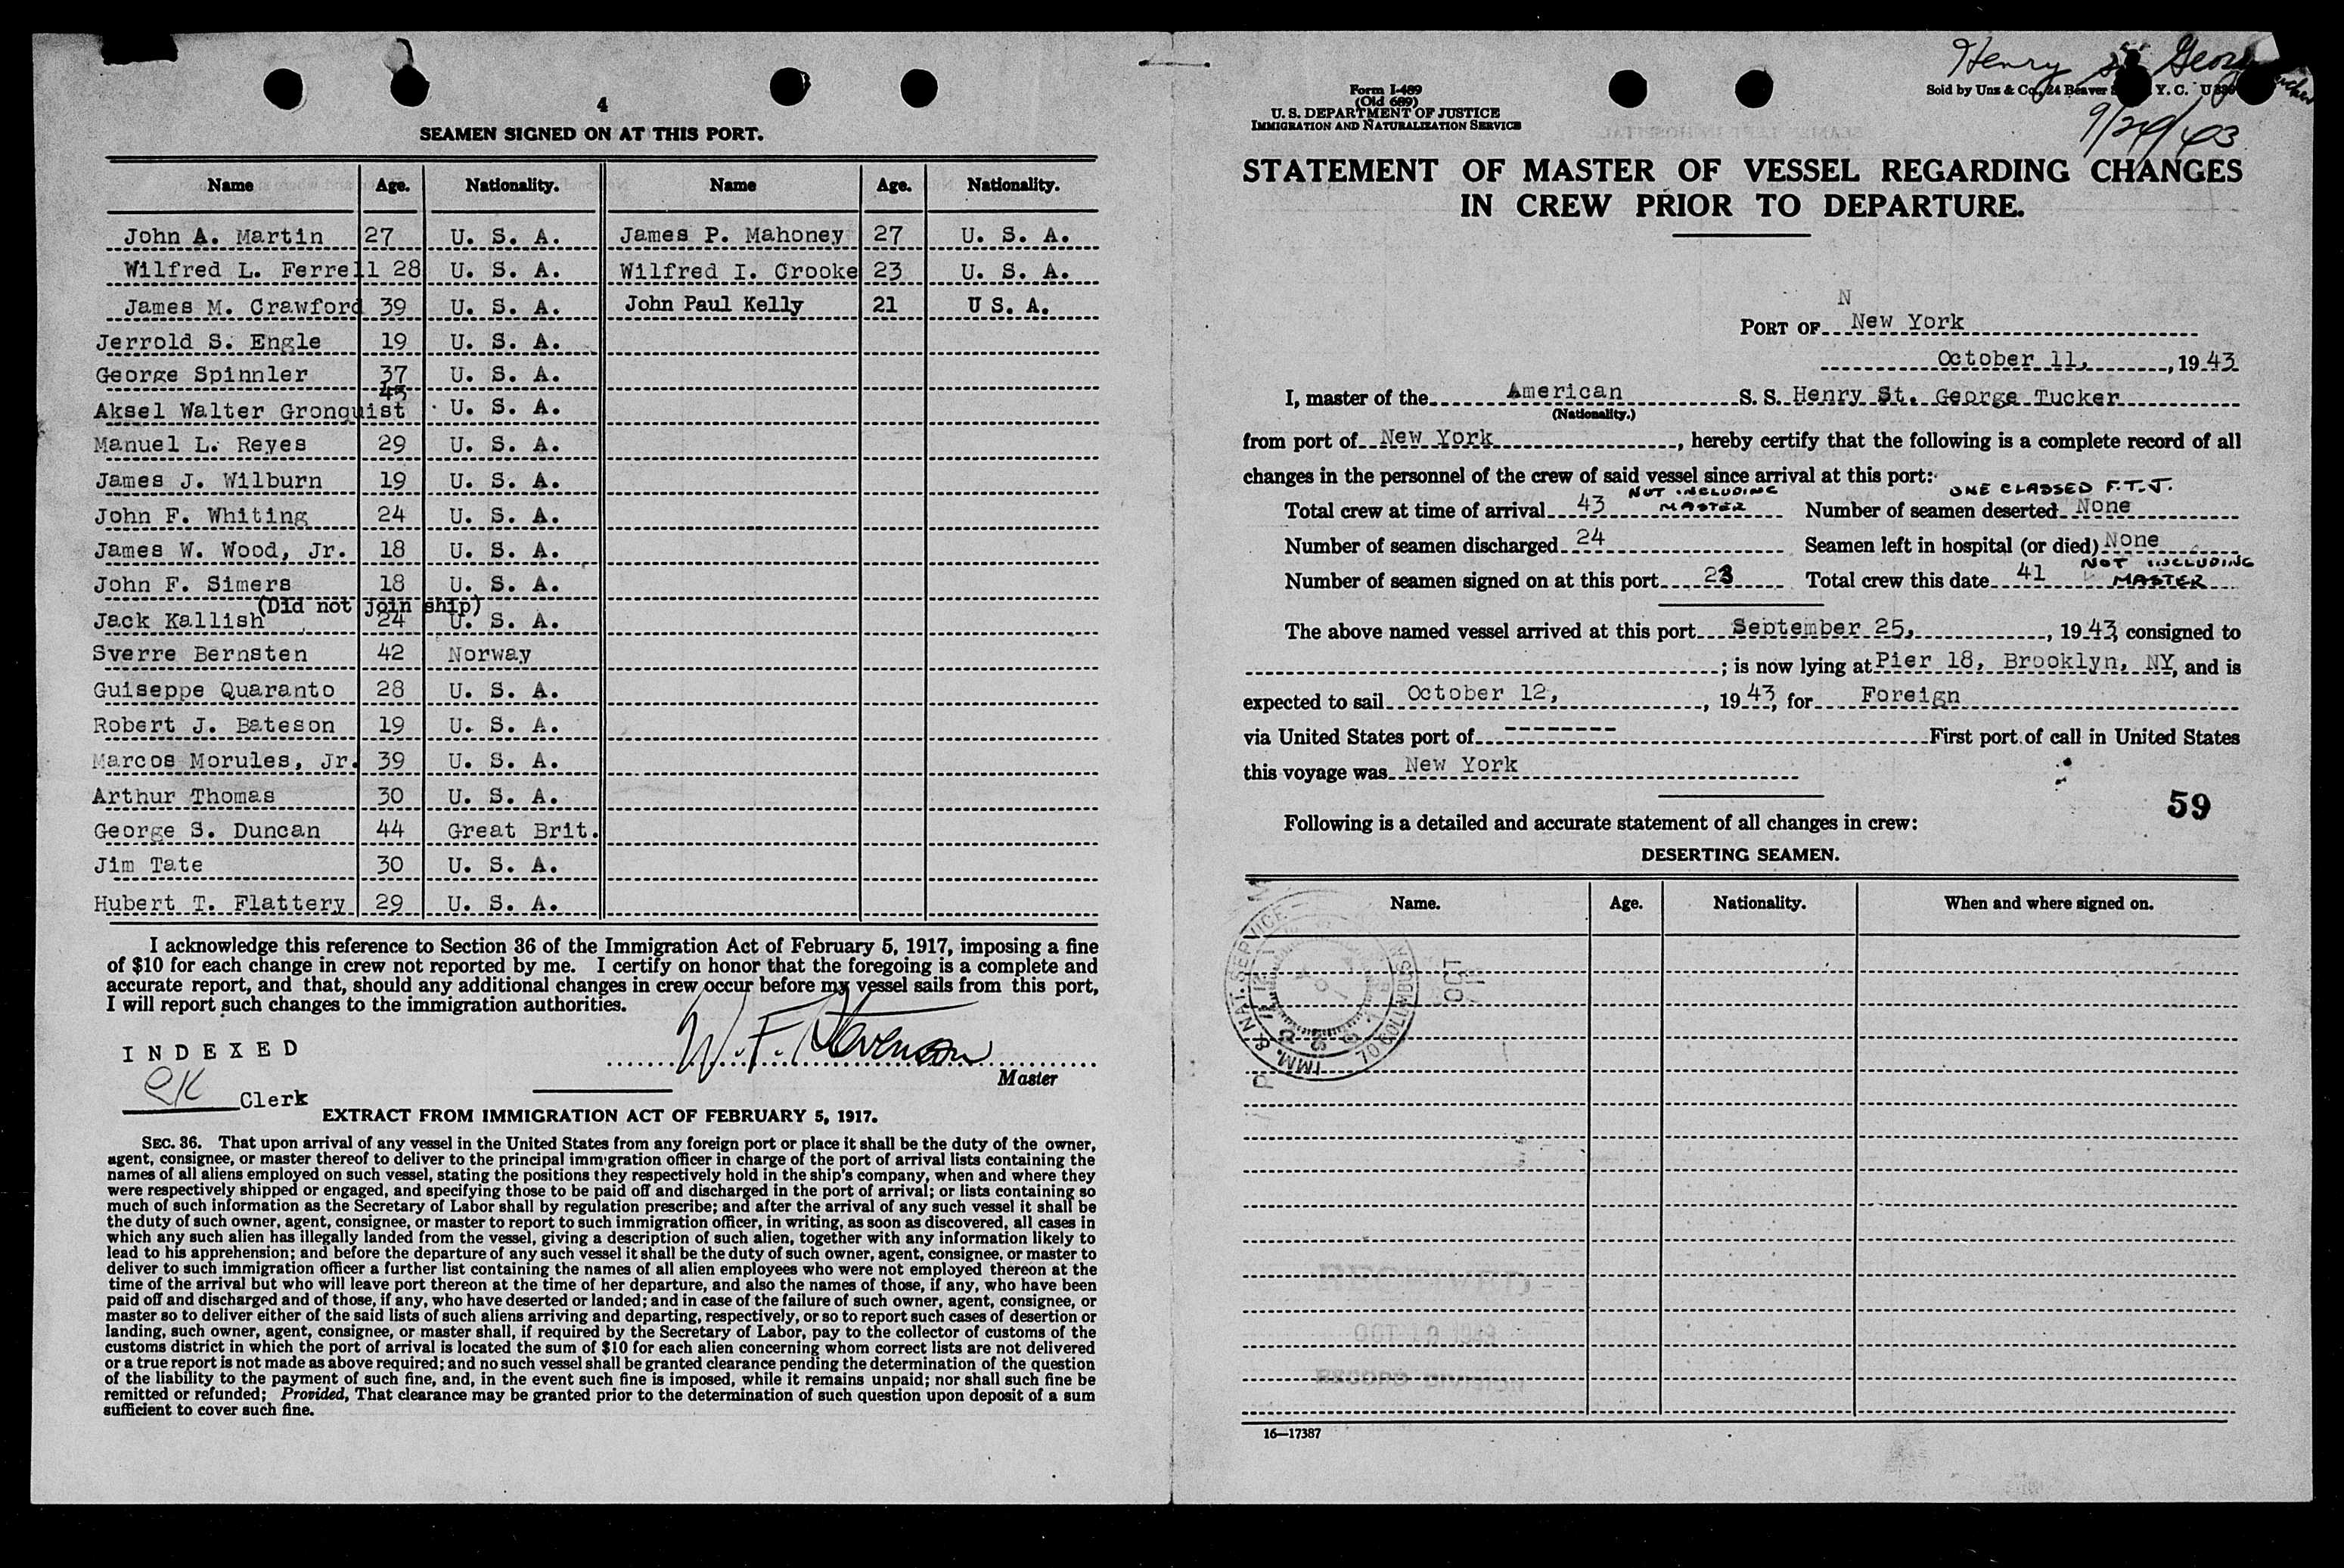 4
SEAMEN SIGNED ON AT THIS PORT.
Name Age. Nationality. Name Age. Nationality.
John A. Martin 27 U. S. A. James P. Mahoney 27 U. S. A.
Wilfred L. Ferrell 28 U. S. A. Wilfred I. Crooke 23 U. S. A.
James M. Crawford 39 U. S. A. John Paul Kelly 21 U S. A.
Jerrold S. Engle 19 U. S. A.
George Spinnler 37 U. S. A.
Aksel Walter Gronquist 45 U. S. A.
Manuel L. Reyes 29 U. S. A.
James J. Wilburn 19 U. S. A.
John F. Whiting 24 U. S. A.
James W. Wood, Jr. 18 U. S. A.
John F. Simers 18 U. S. A.
(Did not join ship)
Jack Kallish 24 U. S. A.
Sverre Bernsten 42 Norway
Guiseppe Quaranto 28 U. S. A.
Robert J. Bateson 19 U. S. A.
Marcos Morules, Jr. 39 U. S. A.
Arthur Thomas 30 U. S. A.
George S. Duncan 44 Great Brit.
Jim Tate 30 U. S. A.
Hubert T. Flattery 29 U. S. A.
I acknowledge this reference to Section 36 of the Immigration Act of February 5, 1917, imposing a fine
of $10 for each change in crew not reported by me. I certify on honor that the foregoing is a complete and
accurate report, and that, should any additional changes in crew occur before my vessel sails from this port,
I will report such changes to the immigration authorities.
W. F. Stevenson
Master
INDEXED
Clerk
EXTRACT FROM IMMIGRATION ACT OF FEBRUARY 5, 1917.
SEC. 36. That upon arrival of any vessel in the United States from any foreign port or place it shall be the duty of the owner,
agent, consignee, or master thereof to deliver to the principal immigration officer in charge of the port of arrival lists containing the
names of all aliens employed on such vessel, stating the positions they respectively hold in the ship's company, when and where they
were respectively shipped or engaged, and specifying those to be paid off and discharged in the port of arrival; or lists containing so
much of such information as the Secretary of Labor shall by regulation prescribe; and after the arrival of any such vessel it shall be
the duty of such owner, agent, consignee, or master to report to such immigration officer, in writing, as soon as discovered, all cases in
which any such alien has illegally landed from the vessel, giving a description of such alien, together with any information likely to
lead to his apprehension; and before the departure of any such vessel it shall be the duty of such owner, agent, consignee, or master to
deliver to such immigration officer a further list containing the names of all alien employees who were not employed thereon at the
time of the arrival but who will leave port thereon at the time of her departure, and also the names of those, if any, who have been
paid off and discharged and of those, if any, who have deserted or landed; and in case of the failure of such owner, agent, consignee, or
master so to deliver either of the said lists of such aliens arriving and departing, respectively, or so to report such cases of desertion or
landing, such owner, agent, consignee, or master shall, if required by the Secretary of Labor, pay to the collector of customs of the
customs district in which the port of arrival is located the sum of $10 for each alien concerning whom correct lists are not delivered
or a true report is not made as above required; and no such vessel shall be granted clearance pending the determination of the question
of the liability to the payment of such fine, and, in the event such fine is imposed, while it remains unpaid; nor shall such fine be
remitted or refunded; Provided, That clearance may be granted prior to the determination of such question upon deposit of a sum
sufficient to cover such fine.
Henry St Geor
Form I-489
(Old 689)
U. S. DEPARTMENT OF JUSTICE
IMMIGRATION AND NATURALIZATION SERVICE
Sold by Unz & Co., 24 Beaver Y. C.
9/24/43
STATEMENT OF MASTER OF VESSEL REGARDING CHANGES
IN CREW PRIOR TO DEPARTURE.
N
PORT OF New York
October 11, , 19 43
I, master of the American S. S. Henry St. George Tucker
(Nationality.)
from port of New York , hereby certify that the following is a complete record of all
changes in the personnel of the crew of said vessel since arrival at this port:
NOT INCLUDING ONE CLASSED F.T.J.
Total crew at time of arrival 43 MASTER Number of seamen deserted None
Number of seamen discharged 24 Seamen left in hospital (or died) None
NOT INCLUDING
Number of seamen signed on at this port 23 Total crew this date 41 MASTER
The above named vessel arrived at this port September 25, , 19 43, consigned to
; is now lying at Pier 18, Brooklyn, NY, and is
expected to sail October 12, , 19 43, for Foreign
via United States port of -------- First port of call in United States
this voyage was New York
59
Following is a detailed and accurate statement of all changes in crew:
DESERTING SEAMEN.
Name. Age. Nationality. When and where signed on.
IMM. & NAT. SERVICE
70 COLUMBUS
OCT
16—17387